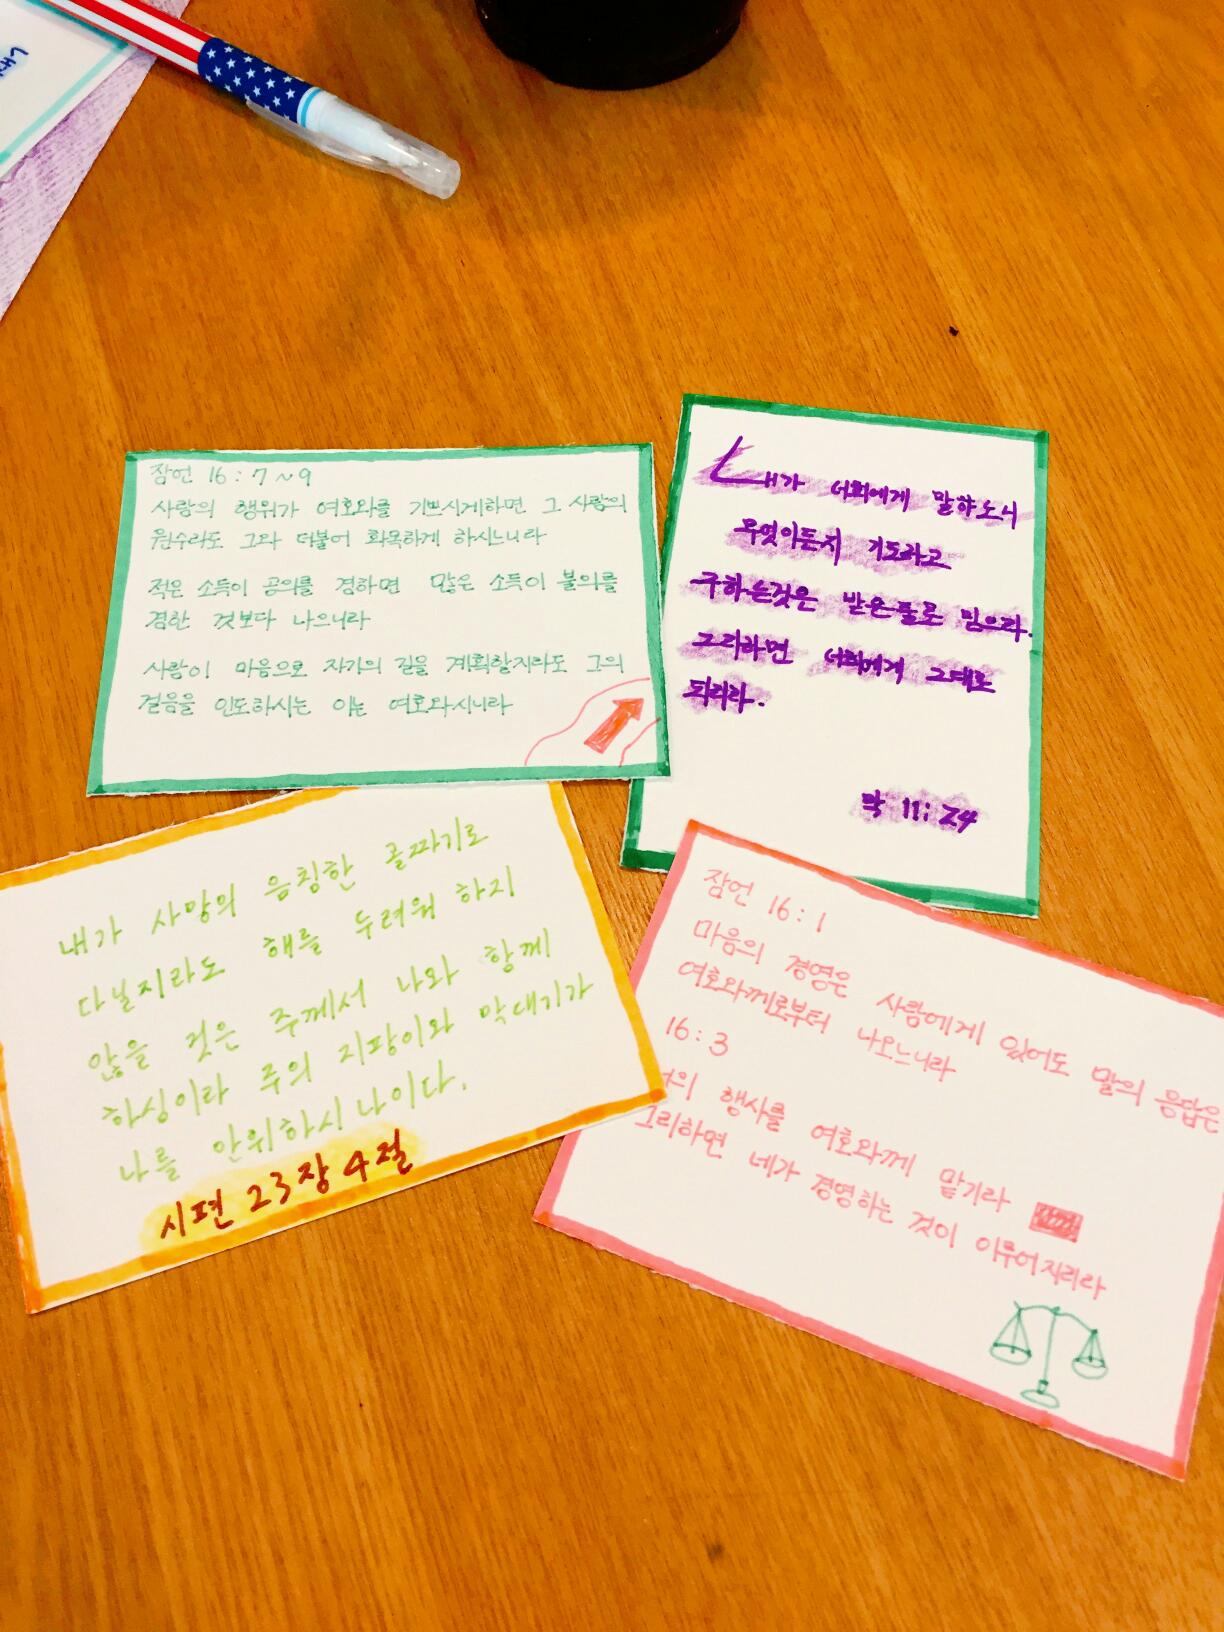 잠언 16:7~9
사람의 행위가 여호와를 기쁘시게하면 그 사람의
원수라도 그와 더불어 화목하게 하시느니라
적은 소득이 공의를 겸하면 많은 소득이 불의를
겸한 것보다 나으니라
사람이 마음으로 자기의 길을 계획할지라도 그의
걸음을 인도하시는 이는 여호와시니라
내가 너희에게 말하노니
무엇이든지 기도하고
구하는것은 받은줄로 믿으라.
그리하면 너희에게 그대로
되리라.
막 11:24
내가 사망의 음침한 골짜기로
다닐지라도 해를 두려워 하지
않을 것은 주께서 나와 함께
하심이라 주의 지팡이와 막대기가
나를 안위하시나이다.
시편 23장 4절
잠언 16:1
마음의 경영은 사람에게 있어도 말의 응답은
여호와께로부터 나오느니라
16:3
너의 행사를 여호와께 맡기라
그리하면 네가 경영하는 것이 이루어지리라